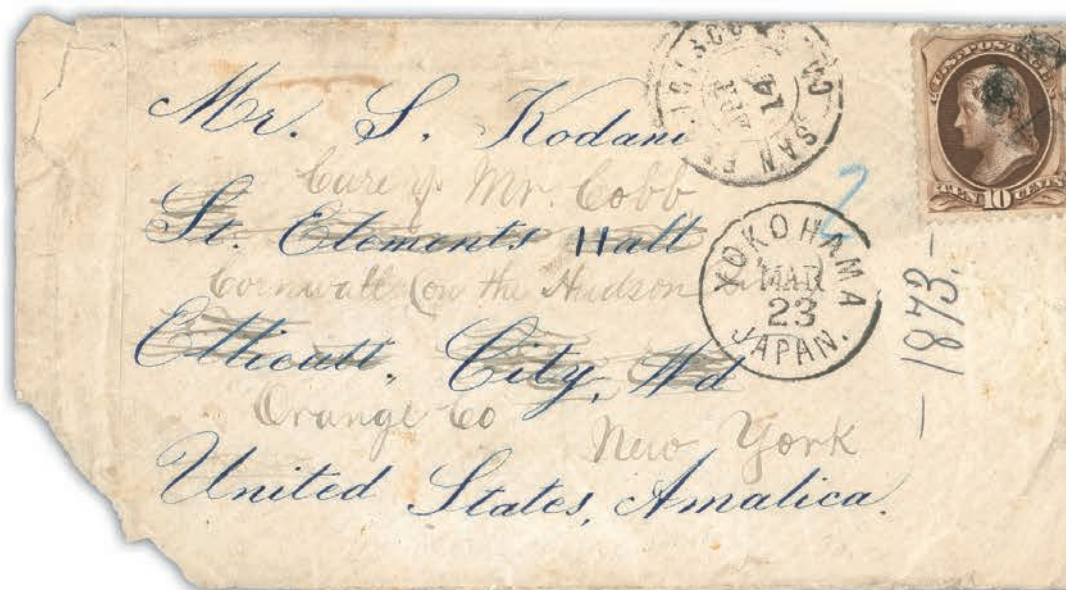 Mr. S. Kodani
Care of Mr. Cobb
St. Clements Hall
Cornwall (on the Hudson
Ellicatt, City, Md
Orange Co New York
United States, Amalica.
SAN FRANCISCO
14
2
YOKOHAMA
MAR
23
JAPAN.
— 1873. —
U.S. POSTAGE
TEN 10 CENTS